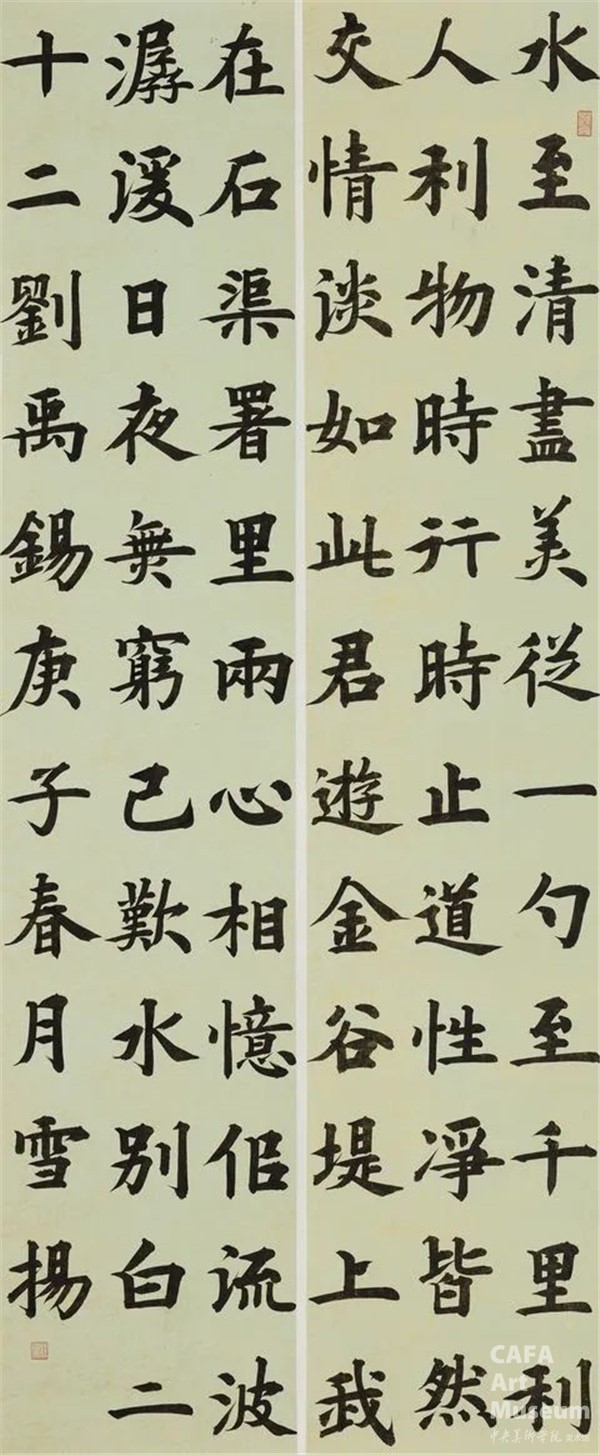 水至清盡美從一勺至千里利
人利物時行時止道性凈皆然
交情淡如此君遊金谷堤上我
在石渠署里兩心相憶佀流波
潺湲日夜無窮已歎水別白二
十二劉禹錫庚子春月雪揚
CAFA
Art
Museum
中央美術學院